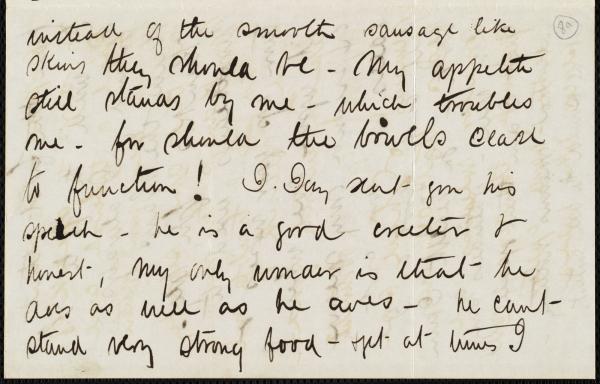 8a
instead of the smooth sausage like
skins they should be - My appetite
still stands by me - which troubles
me - for should the bowells cease
to function! Day sent you his
speech - he is a good &
honest, My only wonder is that he
does as well as he does - he can't
stand very strong food - yet at times I